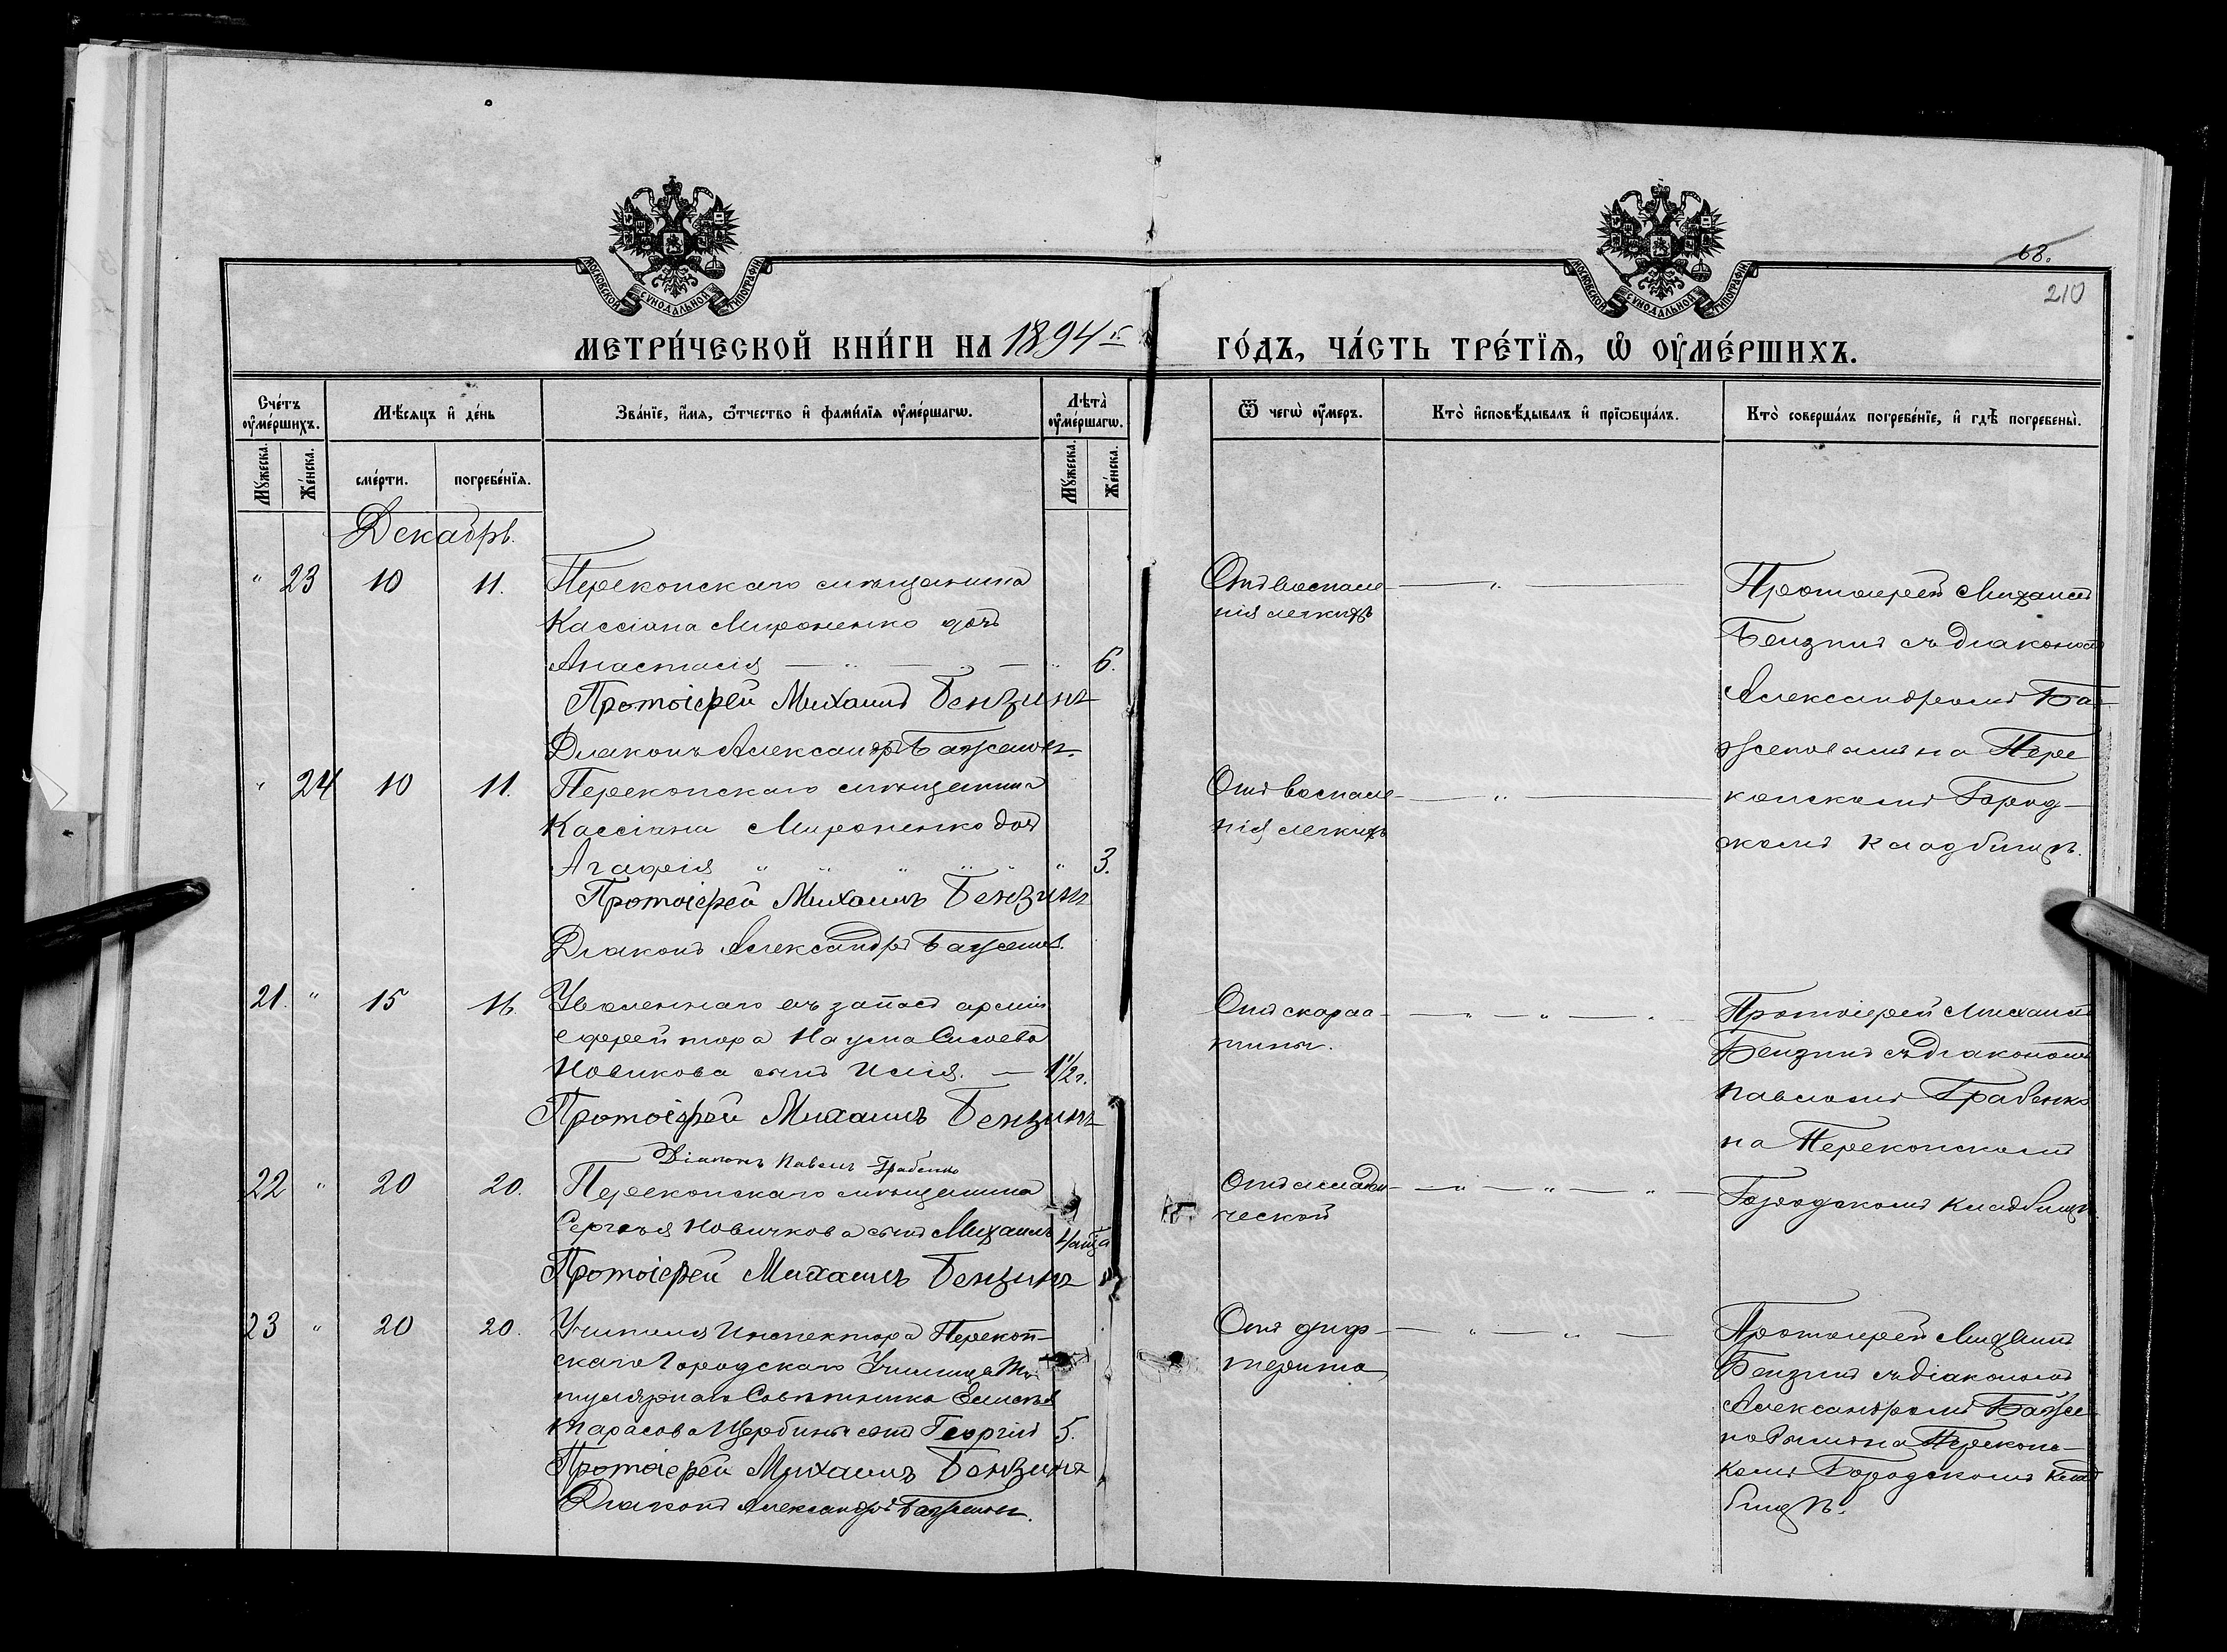 МОСКОВСКОЙ СѴНОДАЛЬНОЙ ТИПОГРАФІИ
МОСКОВСКОЙ СѴНОДАЛЬНОЙ ТИПОГРАФІИ
68.
210
МЕТРИ́ЧЕСКОЙ КНИ́ГИ НА 1894 г.
ГО́ДЪ, ЧА́СТЬ ТРЕ́ТЇѦ, Ѡ҆ ОУ҆МЕ́РШИХЪ.
Сче́тъ оу҆ме́ршихъ.
Мѣ́сяцъ и҆ де́нь
Зва́нїе, и҆́мя, ѻ҆́тчество и҆ фами́лїя оу҆ме́ршагѡ.
Лѣта̀ оу҆ме́ршагѡ.
Ѿ чегѡ̀ оу҆́меръ.
Кто̀ и҆сповѣ́дывалъ и҆ прїѡбща́лъ.
Кто̀ соверша́лъ погребе́нїе, и҆ гдѣ̀ погребены̀.
Мꙋ́жеска.
Же́нска.
сме́рти.
погребе́нїя.
Мꙋ́жеска.
Же́нска.
Декабрь.
" 23 10 11. Перекопскаго мѣщанина
Кассіана Мироненко дочь
Анастасія — " — " — " 6.
Протоіерей Михаилъ Бензинъ
Діаконъ Александръ Баженовъ.
Отъ воспале-
нія легкихъ
Протоіерей Михаилъ
Бензинъ съ діакономъ
Александромъ Ба-
женовымъ на Пере
копскомъ Город-
скомъ кладбищѣ.
" 24 10 11. Перекопскаго мѣщанина
Кассіана Мироненко дочь
Агафія " " " " " " 3.
Протоіерей Михаилъ Бензинъ
Діаконъ Александръ Баженовъ.
Отъ воспале-
нія легкихъ
21. " 15 16. Уволеннаго въ запасъ арміи
ефрейтора Наума Сысоева
Новикова сынъ Илія. — 1 1/2 г.
Протоіерей Михаилъ Бензинъ
Діаконъ Павелъ Грабенко
Отъ скарла-
тины.
Протоіерей Михаилъ
Бензинъ съ діакономъ
Павломъ Грабенко
на Перекопскомъ
Городскомъ кладбищѣ.
22 " 20 20. Перекопскаго мѣщанина
Сергѣя Новичкова сынъ Михаилъ 4 мѣсяца
Протоіерей Михаилъ Бензинъ
Отъ младен-
ческой
23 " 20 20. Учителя Инспектора Перекоп-
скаго Городскаго Училища Ти
тулярнаго Совѣтника
Тарасов Щербины сынъ Георгій 5.
Протоіерей Михаилъ Бензинъ
Діаконъ Александръ Баженовъ.
Отъ диф-
терита
Протоіерей Михаилъ
Бензинъ съ діакономъ
Александромъ Баже
новымъ на Перекопс-
комъ Городскомъ клад
бищѣ.